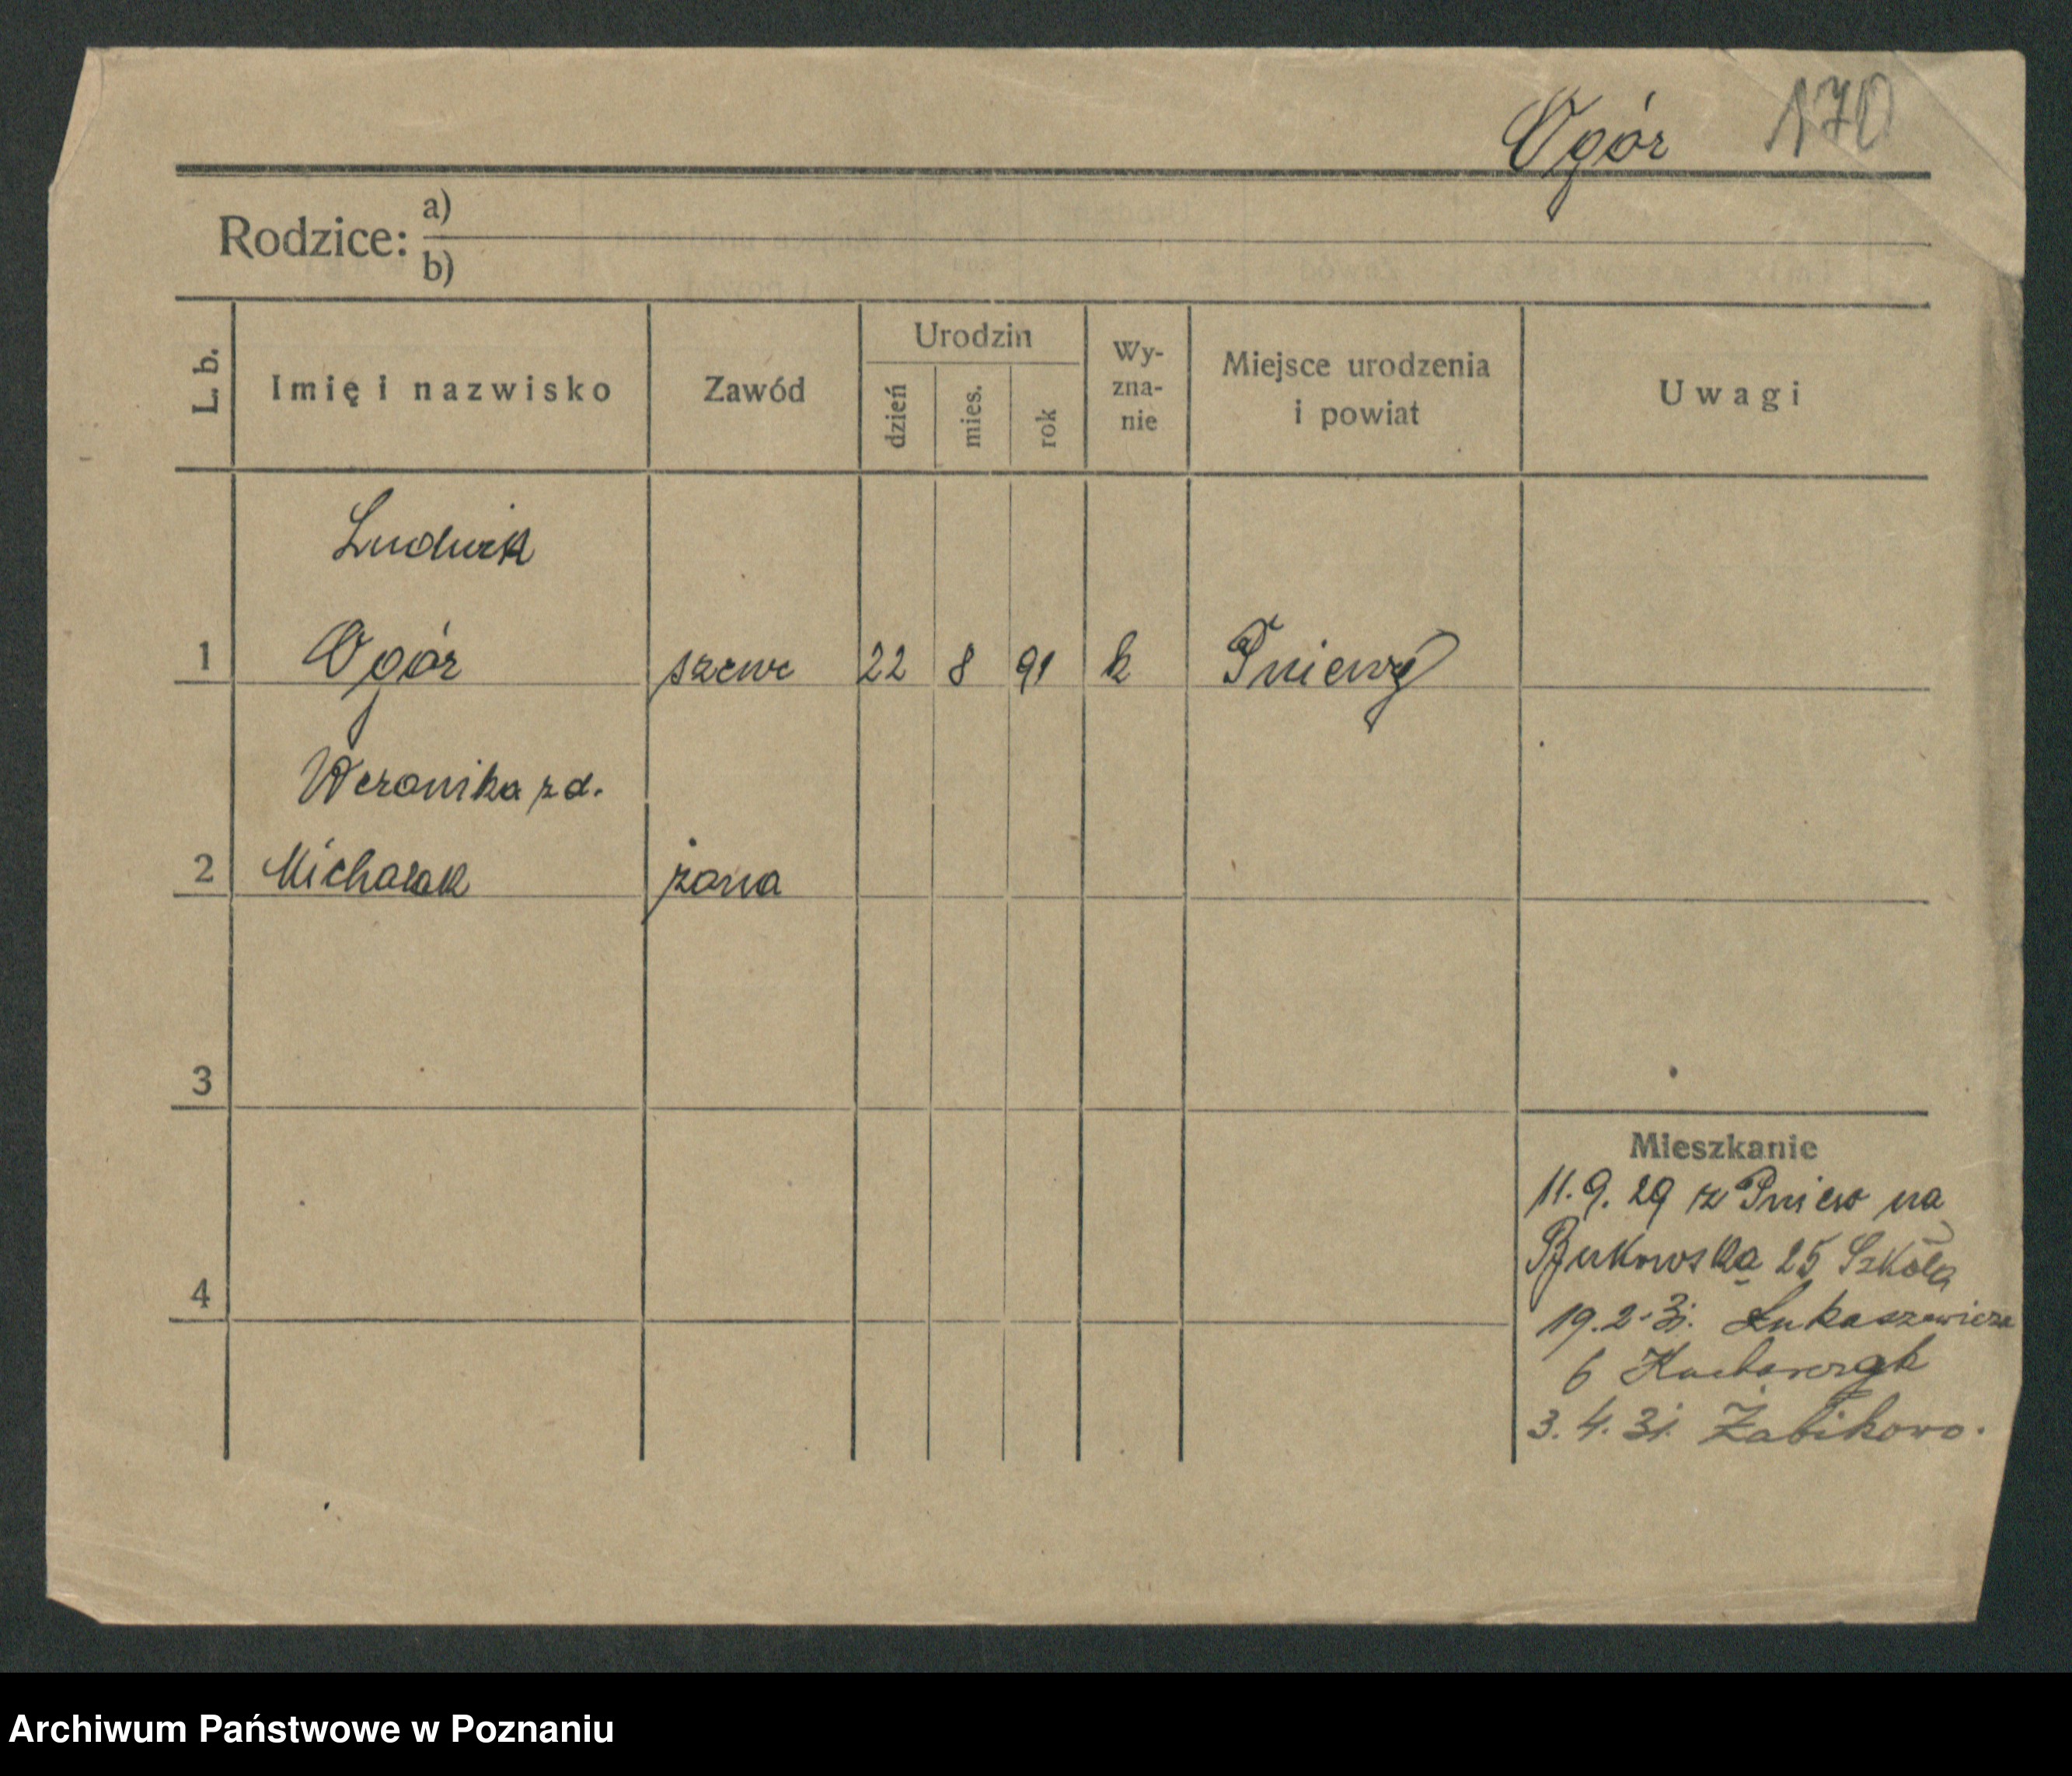 Ogór 170
Rodzice: a)
b)
L. b. Imię i nazwisko Zawód Urodzin dzień mies. rok Wy-zna-nie Miejsce urodzenia i powiat Uwagi
Ludwik
1 Ogór szewc 22 8 91 k Pniewy
Weronika zd.
2 Michalak żona
3
4
Mieszkanie
11.9.29 z Pniew na
Bukowska 25 Szkoła
19.2.31. Łukaszewicza
6
3.4.31 Żabikowo.
Archiwum Państwowe w Poznaniu